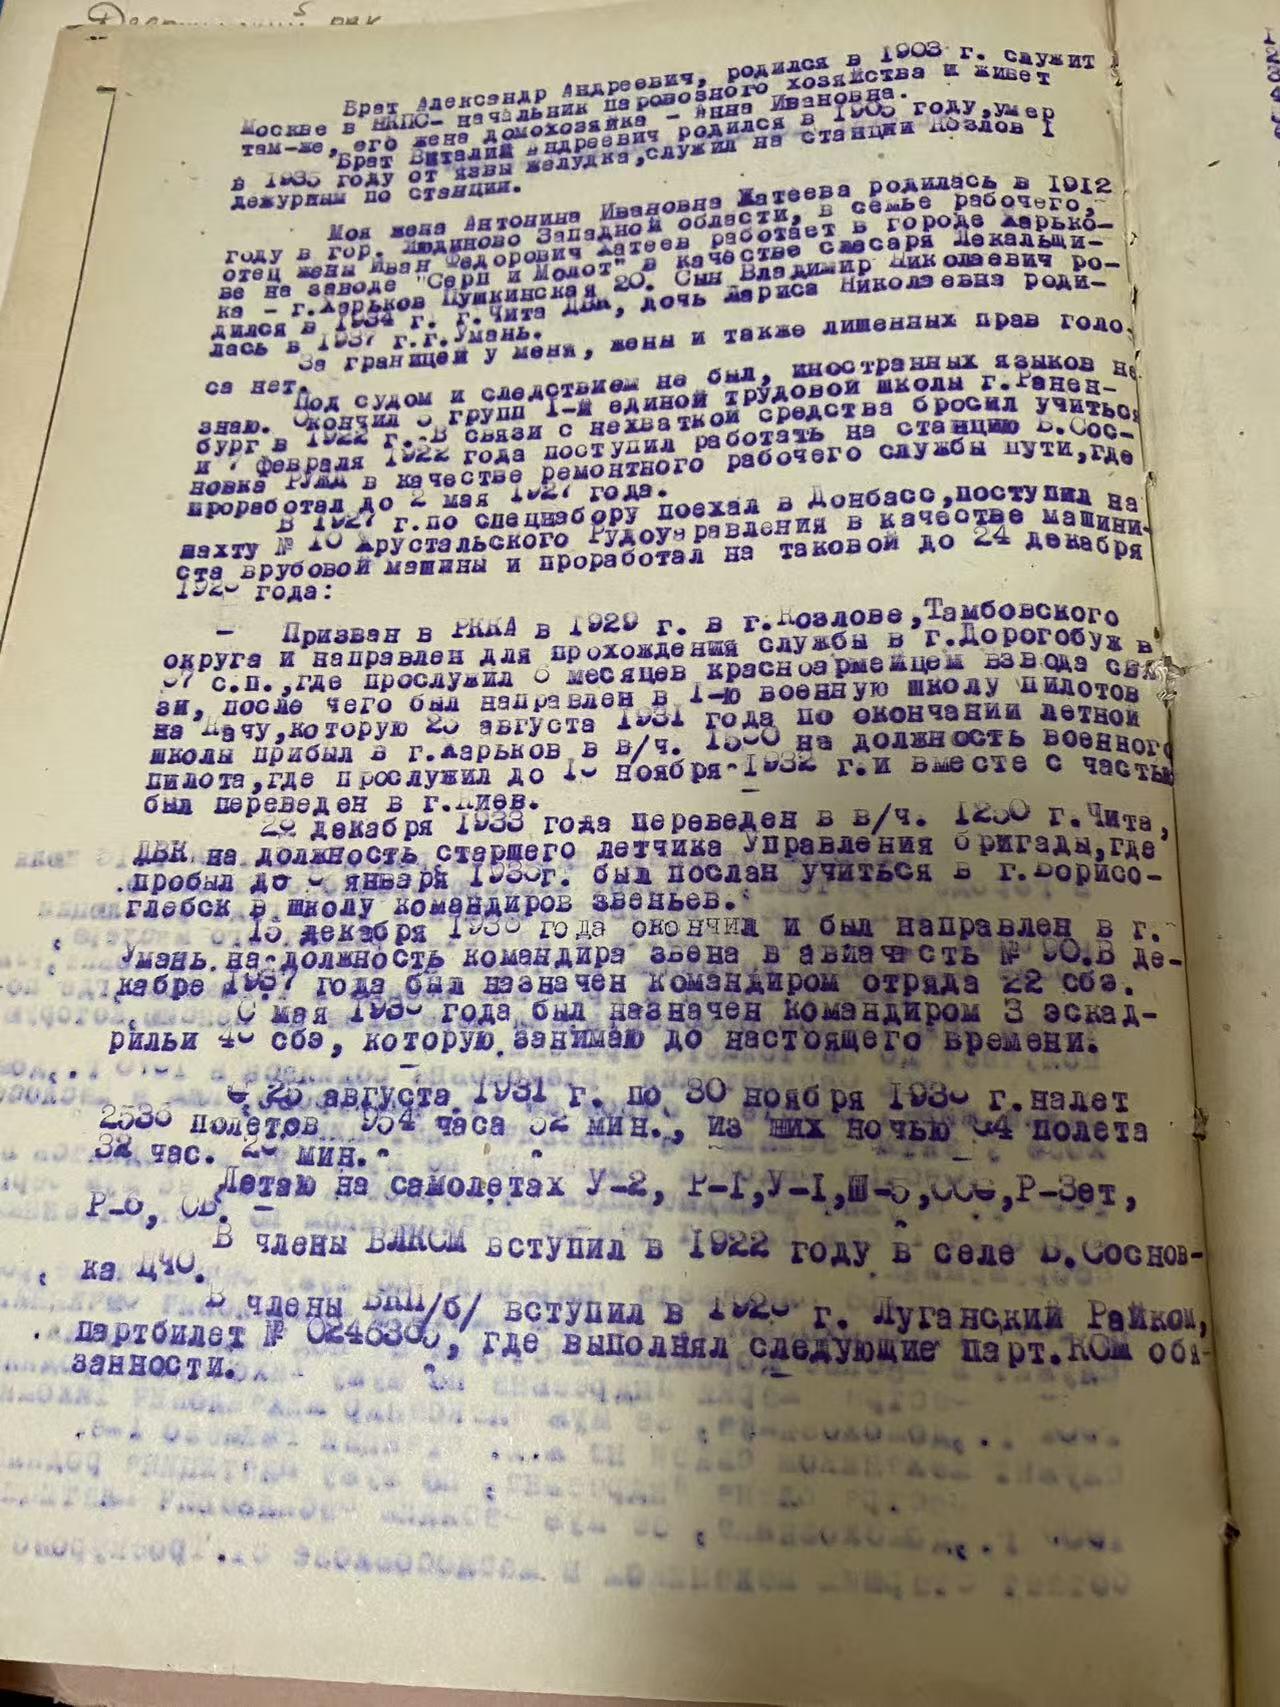 Брат Александр Андреевич, родился в 1903 г. служит
Москве в НКПС- начальник паровозного хозяйства и живет
там-же, его жена домохозяйка - Анна Ивановна.
Брат Виталий Андреевич родился в 1905 году,умер
в 1935 году от язвы желудка,служил на станции Козлов I
дежурным по станции.
Моя жена Антонина Ивановна Жатеева родилась в 1912
году в гор. Людиново Западной области, в семье рабочего,
отец жены Иван Федорович Жатеев работает в городе Харько-
ве на заводе "Серп и Молот" в качестве слесаря Лекальщи-
ка - г.Харьков Пушкинская 20. Сын Владимир Николаевич ро-
дился в 1934 г. г.Чита ДВК, дочь Лариса Николаевна роди-
лась в 1937 г.г.Умань.
За границей у меня, жены и также лишенных прав голо-
са нет.
Под судом и следствием не был, иностранных языков не
знаю. Окончил групп 1-й единой трудовой школы г.Ранен-
бург в 1922 г. В связи с нехваткой средства бросил учиться
и 7 февраля 1922 года поступил работать на станцию В.Сос-
новка РУЖД в качестве ремонтного рабочего службы пути,где
проработал до 2 мая 1927 года.
В 1927 г.по спецнабору поехал в Донбасс,поступил на
шахту № 10 Хрустальского Рудоуправления в качестве машини-
ста врубовой машины и проработал на таковой до 24 декабря
года:
- Призван в РККА в 1929 г. в г.Козлове,Тамбовского
округа и направлен для прохождения службы в г.Дорогобуж в
с.п.,где прослужил месяцев красноармейцем взвода свя-
зи, после чего был направлен в 1-ю военную школу пилотов
на Качу,которую 25 августа 1931 года по окончании летной
школы прибыл в г.Харьков в в/ч. на должность военного
пилота,где прослужил до ноября-1932 г.и вместе с частью
был переведен в г.Киев.
декабря 1933 года переведен в в/ч. 1250 г.Чита,
ДВК на должность старшего летчика Управления бригады,где
пробыл до января г. был послан учиться в г.Борисо-
глебск в школу командиров звеньев.
15 декабря года окончил и был направлен в г.
Умань на должность командира звена в авиачасть № 90.В де-
кабре 1937 года был назначен командиром отряда 22 сбэ.
мая года был назначен командиром 3 эскад-
рильи сбэ, которую занимаю до настоящего времени.
С 25 августа 1931 г. по 30 ноября г.налет
полетов 954 часа 52 мин., из них ночью полета
32 час. мин.
Летаю на самолетах У-2, Р-I,У-I,Ш-5,ССС,Р-Зет,
СБ. -
В члены ВЛКСМ вступил в 1922 году в селе В.Соснов-
ка ЦЧО.
В члены ВКП/б/ вступил в г. Луганский Райком,
партбилет № где выполнял следующие парт.КСМ обя-
занности.